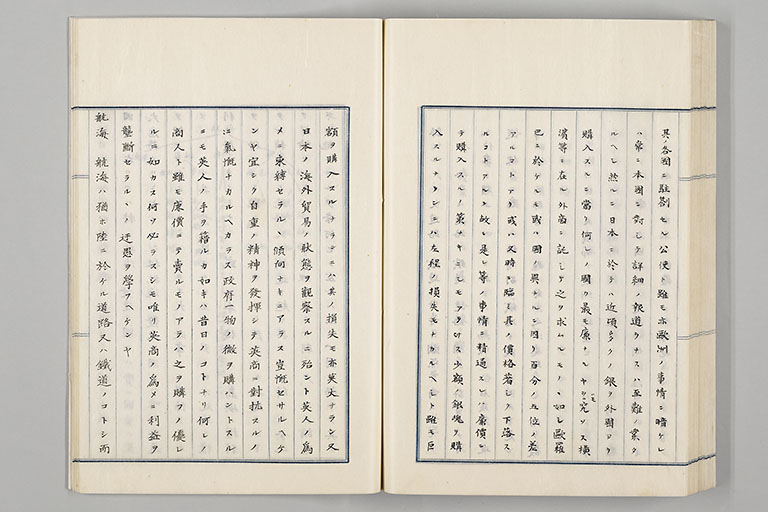 其ノ各國ニ駐劄セル公使ト雖モ亦歐洲ノ事情ニ暗ケレ
ハ常ニ本國ニ對シテ詳細ノ報道ヲナスハ至難ノ業タ
ルヘシ然ルニ日本ニ於テハ近頃多クノ銀ヲ外國ヨリ
購入スルニ當リ何レノ國カ最モ廉ナルヤヲモ究メス横
濱等ニ在ル外商ニ託シテ之ヲ求ムルモノヽ如シ歐羅
巴ニ於ケルモ或ハ國ノ異ナルニ因リ百分ノ五位ノ差
アルコトアリ或ハ又時ニ臨ミ其ノ價格著シク下落ス
ルコトアルカ故ニ是レ等ノ事情ニ精通スレハ廉價ニ
テ購入スルノ策ナキニシモアラサルヘシ少額ノ銀塊ヲ購
入スルナランニハ左程ノ損失モナカルヘシト雖モ巨
額ヲ購入スルナランニハ其ノ損失モ亦莫大ナラン又
日本ノ海外貿易ノ狀態ヲ觀察スルニ殆ント英人ノ爲
メニ束縛セラルヽノ傾向ナキニアラス豈慨セサルヘケ
ンヤ宜シク自重ノ精神ヲ發揮シテ英商ニ對抗スルノ
氣慨ナカルヘカラス政府一物ノ微ヲ購ハントスル
ニモ英人ノ手ヲ藉ルカ如キハ昔日ノコトナリ何レノ
商人ト雖モ廉價ニテ賣ルモノアラハ之ヲ購フノ優レ
ルニ如カス何ソ必ラスシモ唯リ英商ノ爲メニ利益ヲ
壟斷セラルヽノ迂愚ヲ學フヘケンヤ
航海 航海ハ猶ホ陸ニ於ケル道路又ハ鐵道ノコトシ而